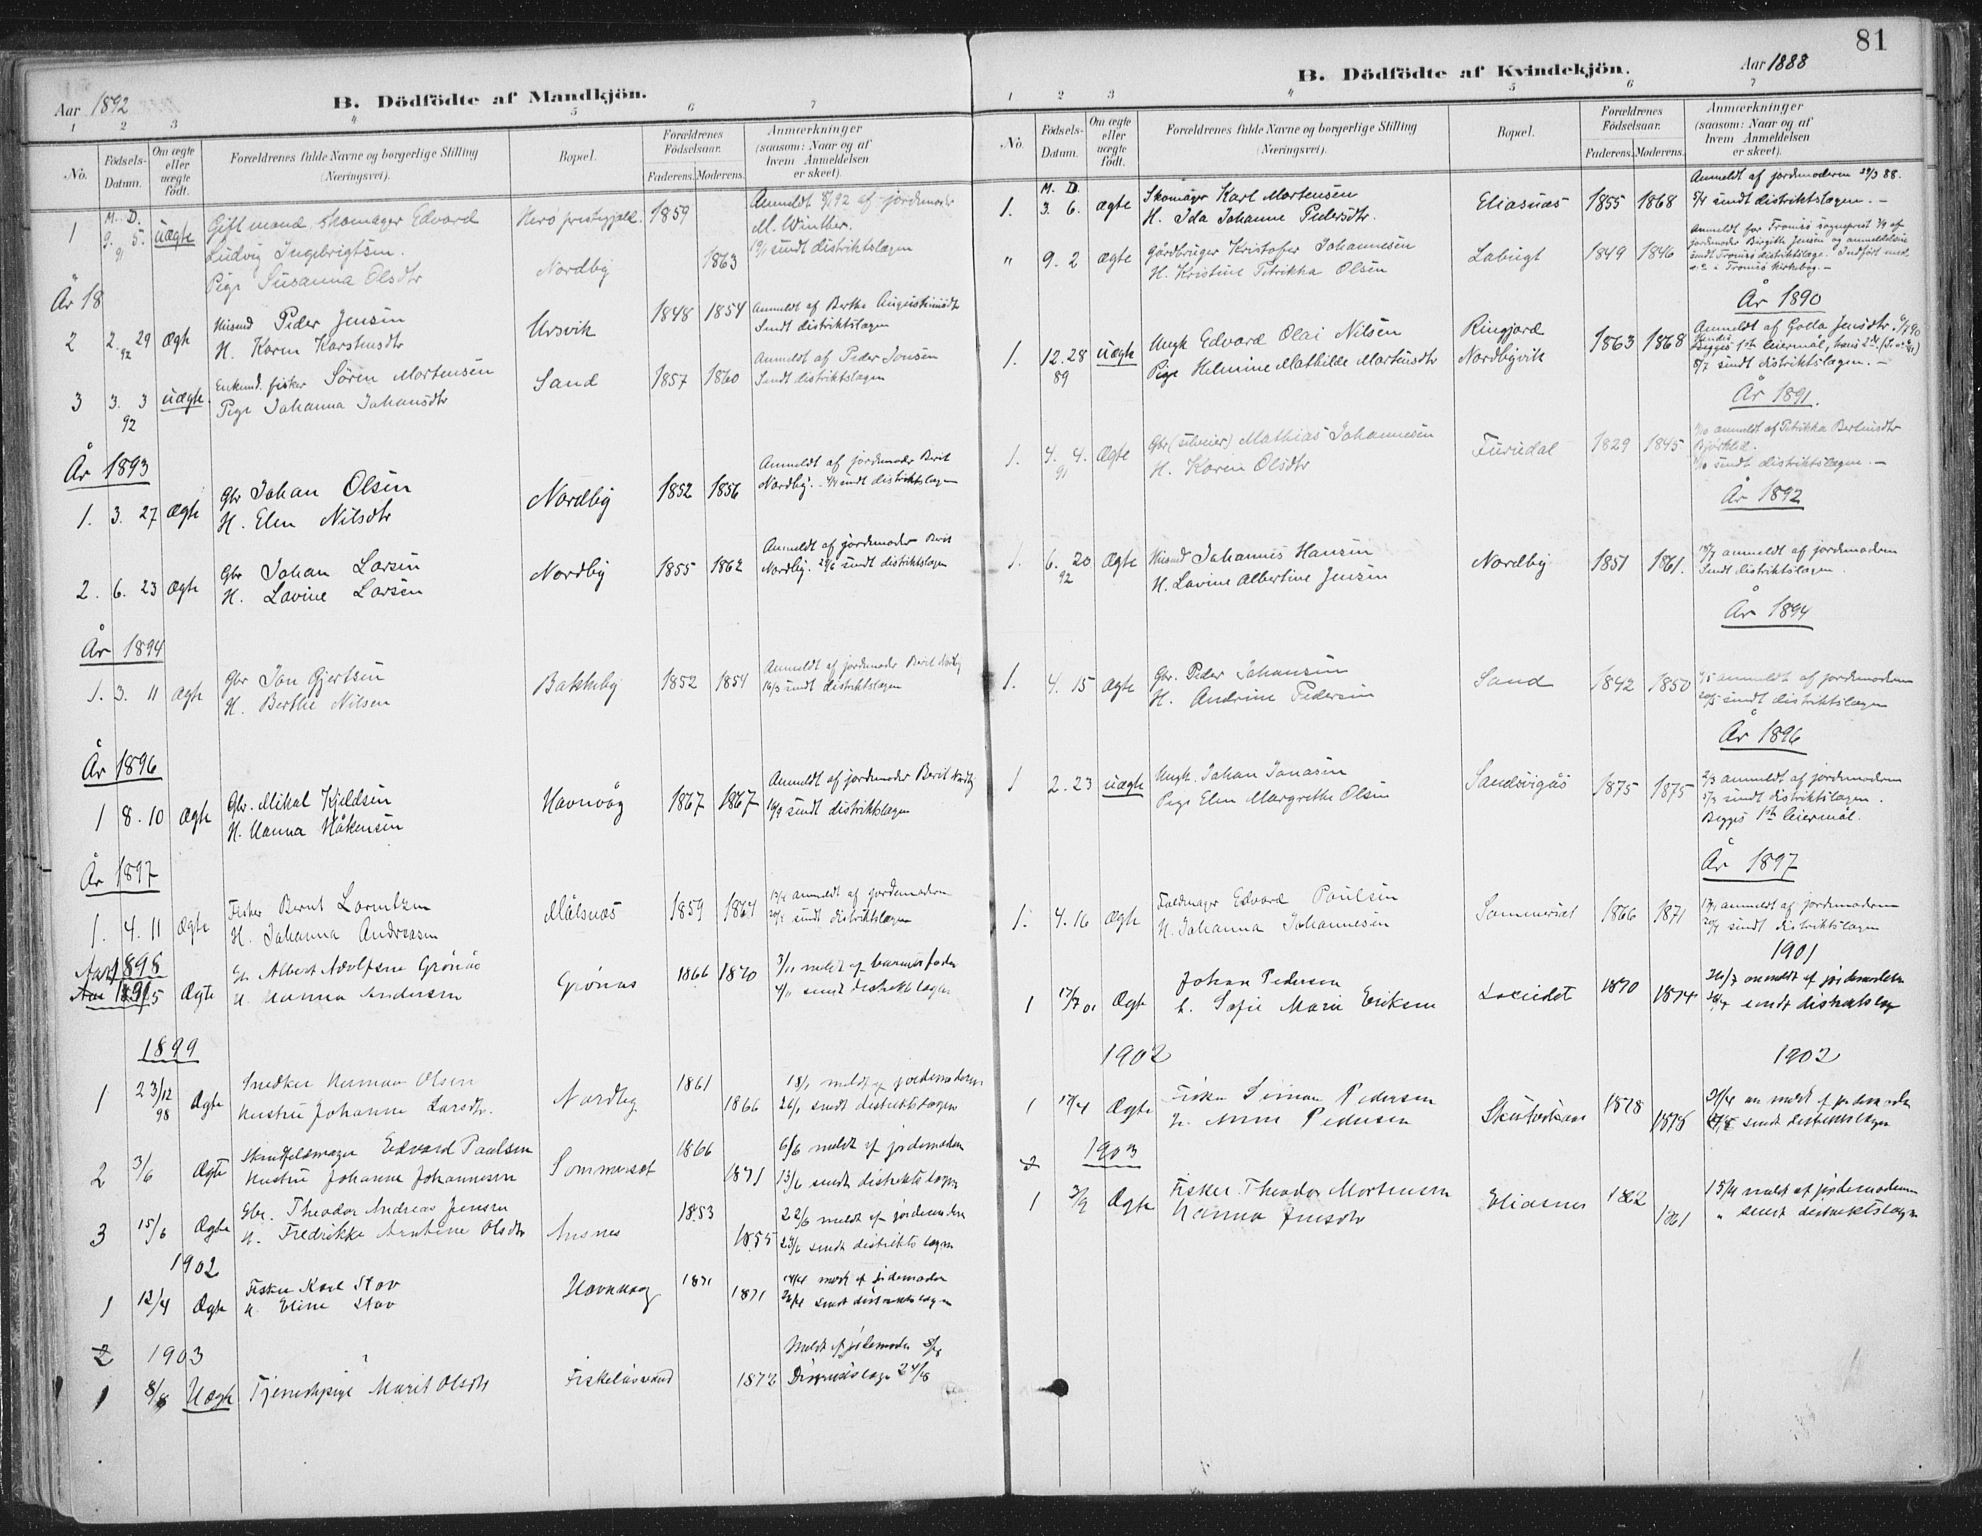 81
Aar 1892
B. Dödfödte af Mandkjön.
1 2 3 4 5 6 7
No.
Födsels-Datum.
Om ægte eller uægte födt.
Forældrenes fulde Navne og borgerlige Stilling
(Næringsvei).
Bopæl.
Forældrenes Födselsaar.
Faderens. Moderens.
Anmærkninger
(saasom: Naar og af
hvem Anmeldelsen
er skeet).
M. D.
1 9. 5. uægte Gift mand, skomager Edvard 1859 Anmeldt /92 af jordemoder
91 Ludvig Ingebrigtsen. M. Winther.
Pige Susanna Olsdtr Nordby 1863 sendt distriktslægen
År 18
2 2. 29 Ægte Peder Jensen Ursvik 1848 1854 Anmeldt af Berthe
92 H. Karen Karstensdtr Sendt distriktslægen
3 3. 3 uægte. Enkemd. fisker Sören Mortensen Sand 1857 1860 Anmeldt af Peder Jonsen
92 Pige Johanna Johansdtr Sendt distriktslægen
År 1893
1. 3. 27 Ægte Gbr Johan Olsen Nordby 1852 1856 Anmeldt af jordemoder Berit
H. Elen Nilsdtr Nordby. sendt distriktslægen
2. 6. 23 Ægte Gbr Johan Larsen Nordby 1855 1862 Anmeldt af jordemoder Berit
H. Lavine Larsen Nordby. sendt distriktslægen
År 1894
1. 3. 11 Ægte Gbr Jon Gjertsen Bakkeby 1852 1854 Anmeldt af jordemoder Berit Nordby
H. Berthe Nilsen 16/3 sendt distriktslægen
År 1896
1 8. 10 Ægte Gbr. Mikal Kjeldsen Havnvåg 1867 1867 Anmeldt af jordemoder Berit Nordby
H. Hanna Håkensen sendt distriktslægen
År 1897
1. 4. 11 Ægte Fisker Bernt Lorentzen Målsnæs 1859 1864 anmeldt af jordemoderen
H. Johanna Andreasen sendt distriktslægen
Aar 1898
Ægte Albert Adolfsen Grönås Grönås 1866 1870 meldt af barnets fader
H. Hanna Andersen sendt distriktslægen
1899
1 23/12 Ægte Snedker Herman Olsen Nordby 1861 18/1 meldt af jordemoderen
98 Hustru Johanne Larsdtr. 1866 26/1 sendt distriktslægen
2 3/6 Ægte Skindfelsmager Edvard Paulsen Sommersæt 1866 6/6 meldt af jordemoderen
Hustru Johanne Johannesen 1871 13/6 sendt distriktslægen
3 15/6 Ægte Gbr. Theodor Andreas Jensen Ansnes 1853 22/6 meldt af jordemoderen
H. Fredrikke Arntine Olsdtr 1855 23/6 sendt distriktslægen
1902
1 12/4 Ægte Fisker Karl Stav Havnvaag 1871 meldt af jordemoder
H. Eline Stav 1871 sendt distriktslægen
2 1903
1 8/8 Uægte Tjenestepige Marit Olsdtr 1872 Meldt af jordemoder
24/8
Aar 1888
B. Dödfödte af Kvindekjön.
1 2 3 4 5 6 7
No.
Födsels-Datum.
Om ægte eller uægte födt.
Forældrenes fulde Navne og borgerlige Stilling
(Næringsvei).
Bopæl.
Forældrenes Födselsaar.
Faderens. Moderens.
Anmærkninger
(saasom: Naar og af
hvem Anmeldelsen
er skeet).
M. D.
1. 3. 6. ægte Skomager Karl Mortensen Eliasnæs 1855 1868 Anmeldt af jordemoderen 88.
H. Ida Johanne Pedersdtr. sendt distriktslægen. –
" 9. 2 ægte Gårdbruger Kristofer Johannesen 1849 1846 Anmeldt for Tromsö sogneprest af
H. Kristine Petrikka Olsen jordemoder Birgith Jensen og anmeldelse
sendt Tromsö distriktslæge. Indfört med
i Tromsö kirkebog. –
År 1890
1. 12. 28 uægte Ungk. Edvard Olai Nilsen Ringjord 1863 1868 Anmeldt af Golla Jensdtr.
89 Pige Helmine Mathilde Mortensdtr Nordbyvik 1ste leiermål, hans 2det
sendt distriktslægen. –
År 1891.
1. 4. 4. Ægte Gbr Mathias Johannesen Furudal 1829 1845 anmeldt af Petrikka Berteusdtr
91 H. Karen Olsdtr sendt distriktslægen. –
År 1892
1. 6. 20 Ægte Johannes Hansen Nordby 1851 1861. anmeldt af jordemoderen
92 H. Lavine Albertine Jensen Sendt distriktslægen.
År 1894
1. 4. 15 Ægte Gbr. Peder Johansen Sand 1842 1850 anmeldt af jordemoderen
H. Andrine Pedersen sendt distriktslægen
År 1896
1 2. 23 uægte Ungk. Johan Jonasen 1875 1875 2/3 anmeldt af jordemoderen
Pige Elen Margrethe Olsen sendt distriktslægen.
Begges 1ste leiermål.
År 1897
1. 4. 16 Ægte Edvard Paulsen Sommersæt 1866 1871 anmeldt af jordemoderen
H. Johanna Johannesen sendt distriktslægen
1901
1 17/7 01 Ægte Johan Pedersen 1870 anmeldt af jordemoderen
h. Sofie Marie Eriksen 1874 sendt distriktslæg
1902 1902
1 Ægte Fisker Simon Pedersen 1878 an meldt af jordemoderen
h. Anne Pedersen 1878 sendt distriktslægen
2 1903
1 3/9 Ægte Fisker Theodor Mortensen Eliasnes 1862 15/9 meldt af jordemoderen
Hanna Jensdtr 1861 " sendt distriktslægen